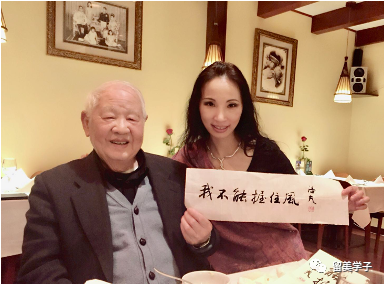 我不能握住風
留美学子